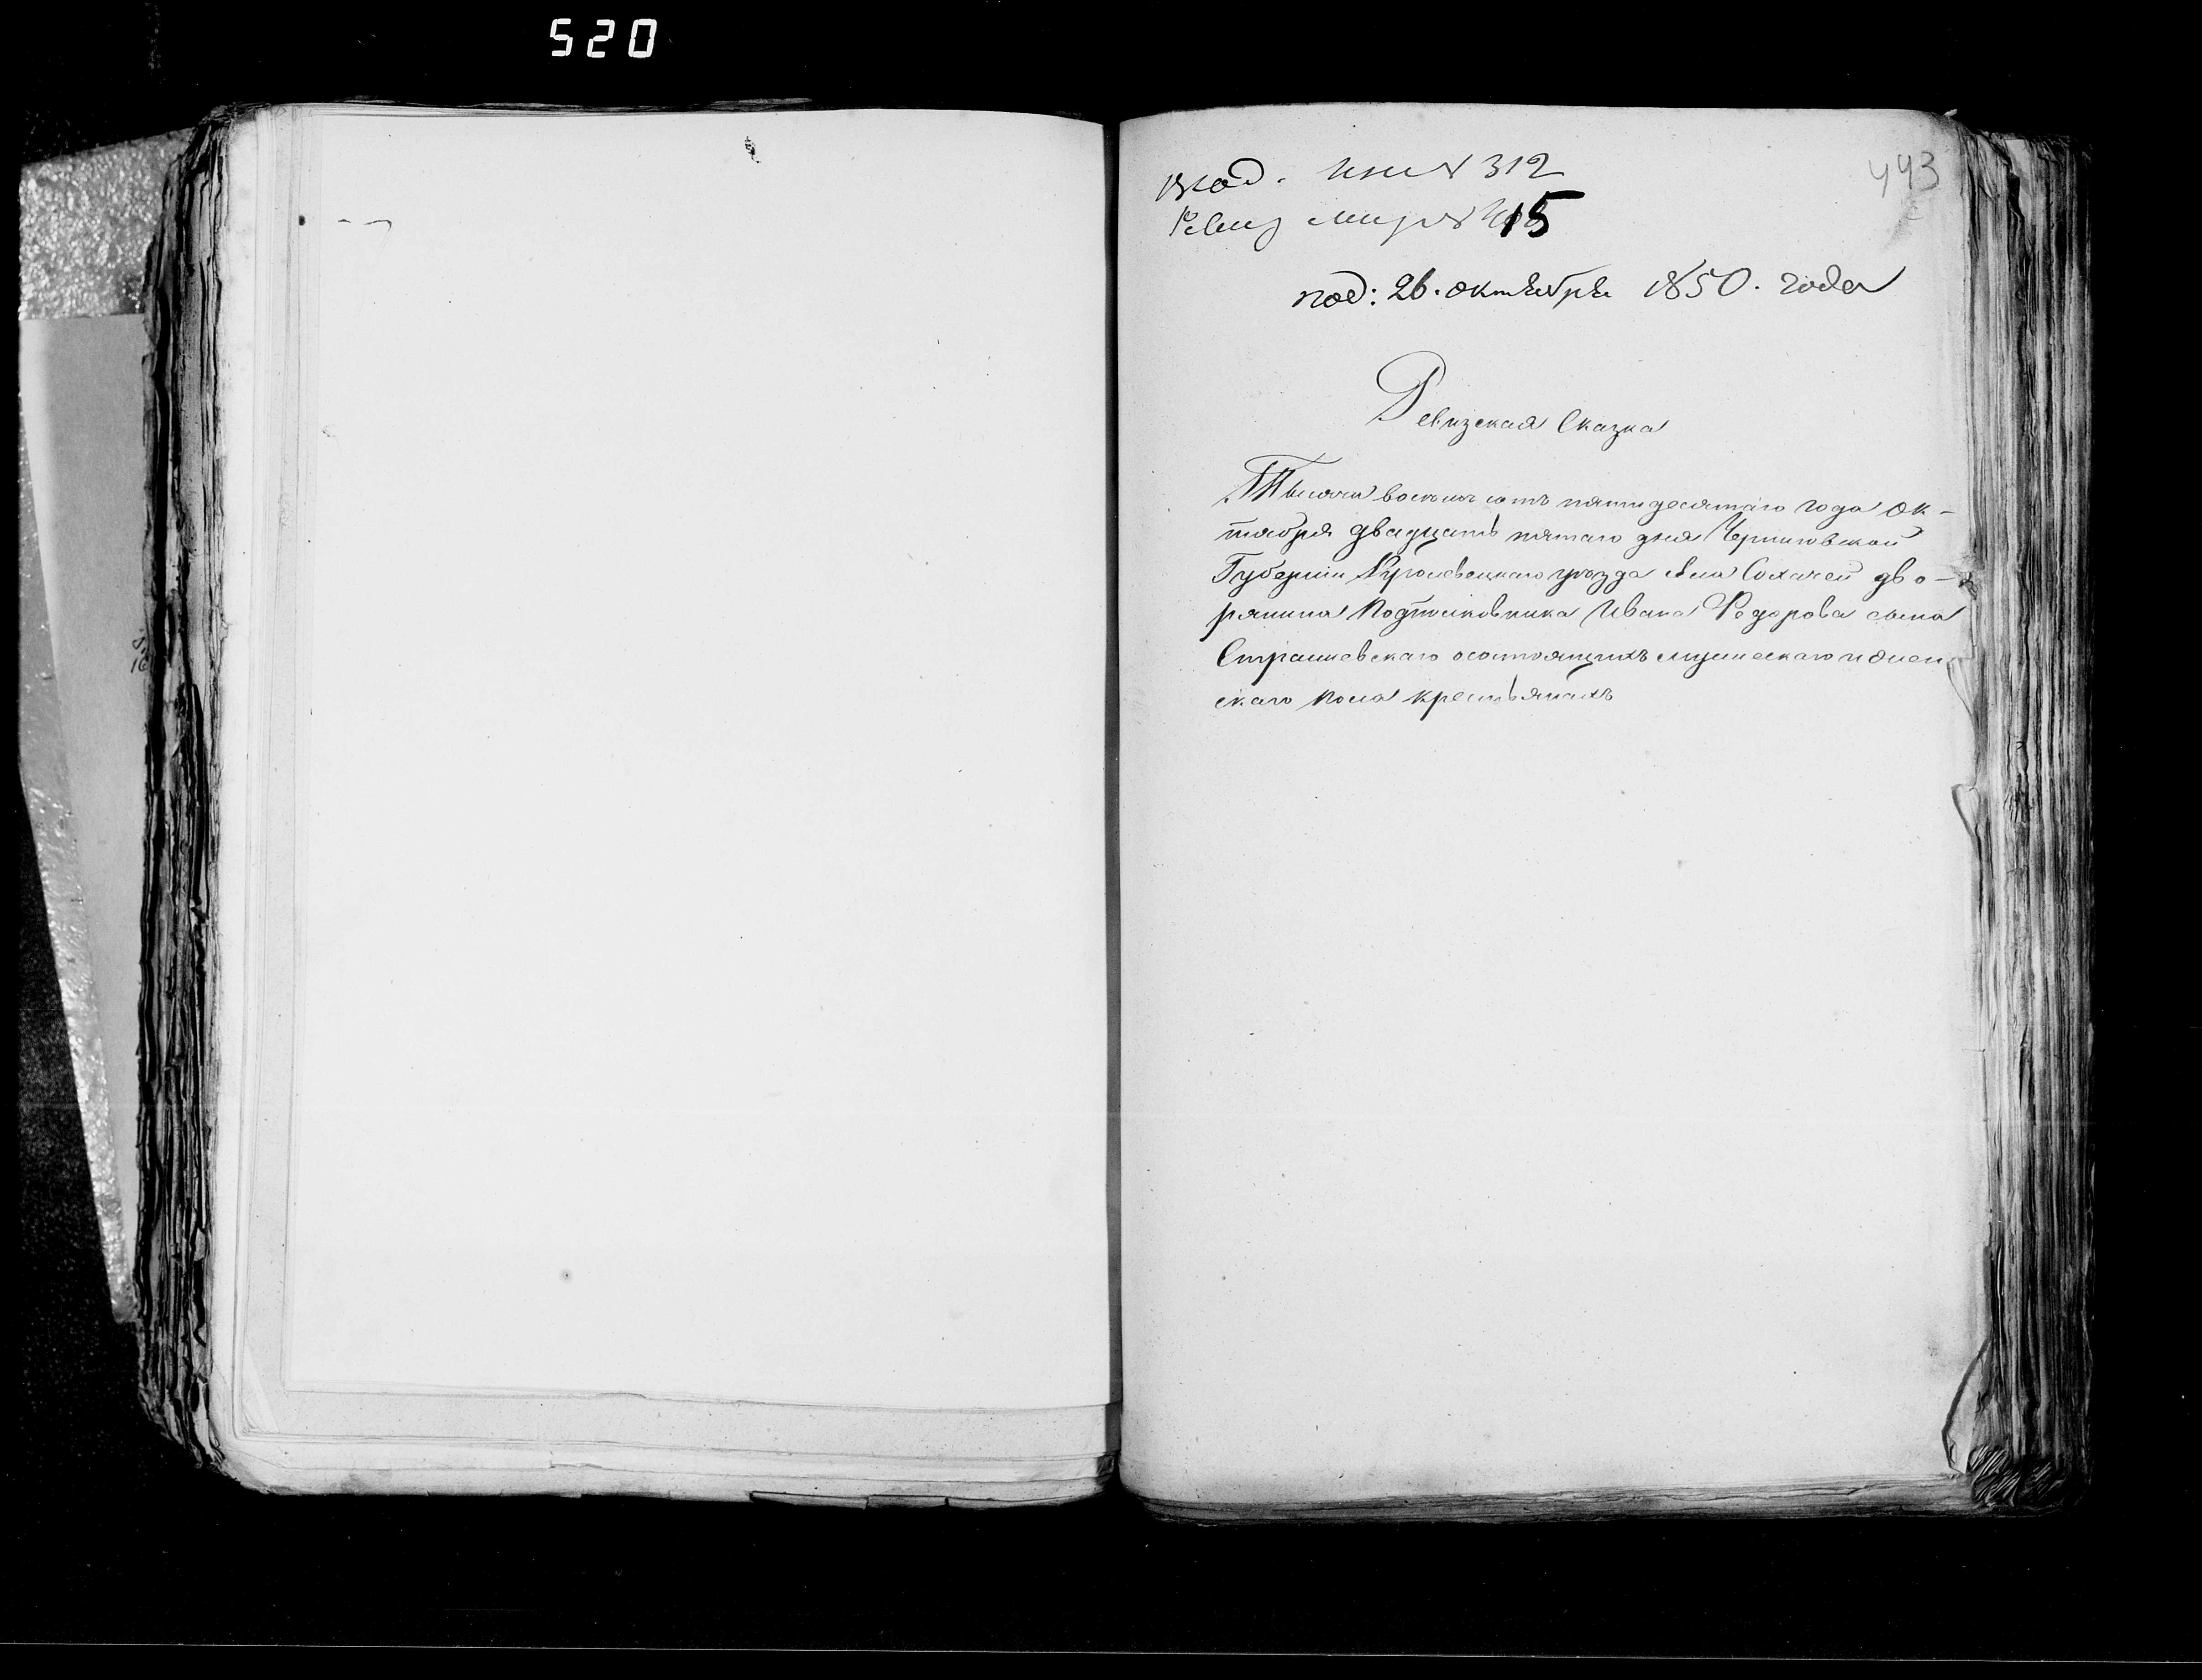 520
443
вход. № 312
Ревиз № 415
под: 26. октября 1850. года
Ревизская Сказка
Тысяча восемь сотъ пятидесятаго года Ок-
тября двадцать пятаго дня Черниговской
Губернии Кролевецкаго уезда дво-
рянина Подполковника Ивана Федорова сына
Страшевскаго осостоящихъ мужескаго и женс
скаго пола крестьянахъ